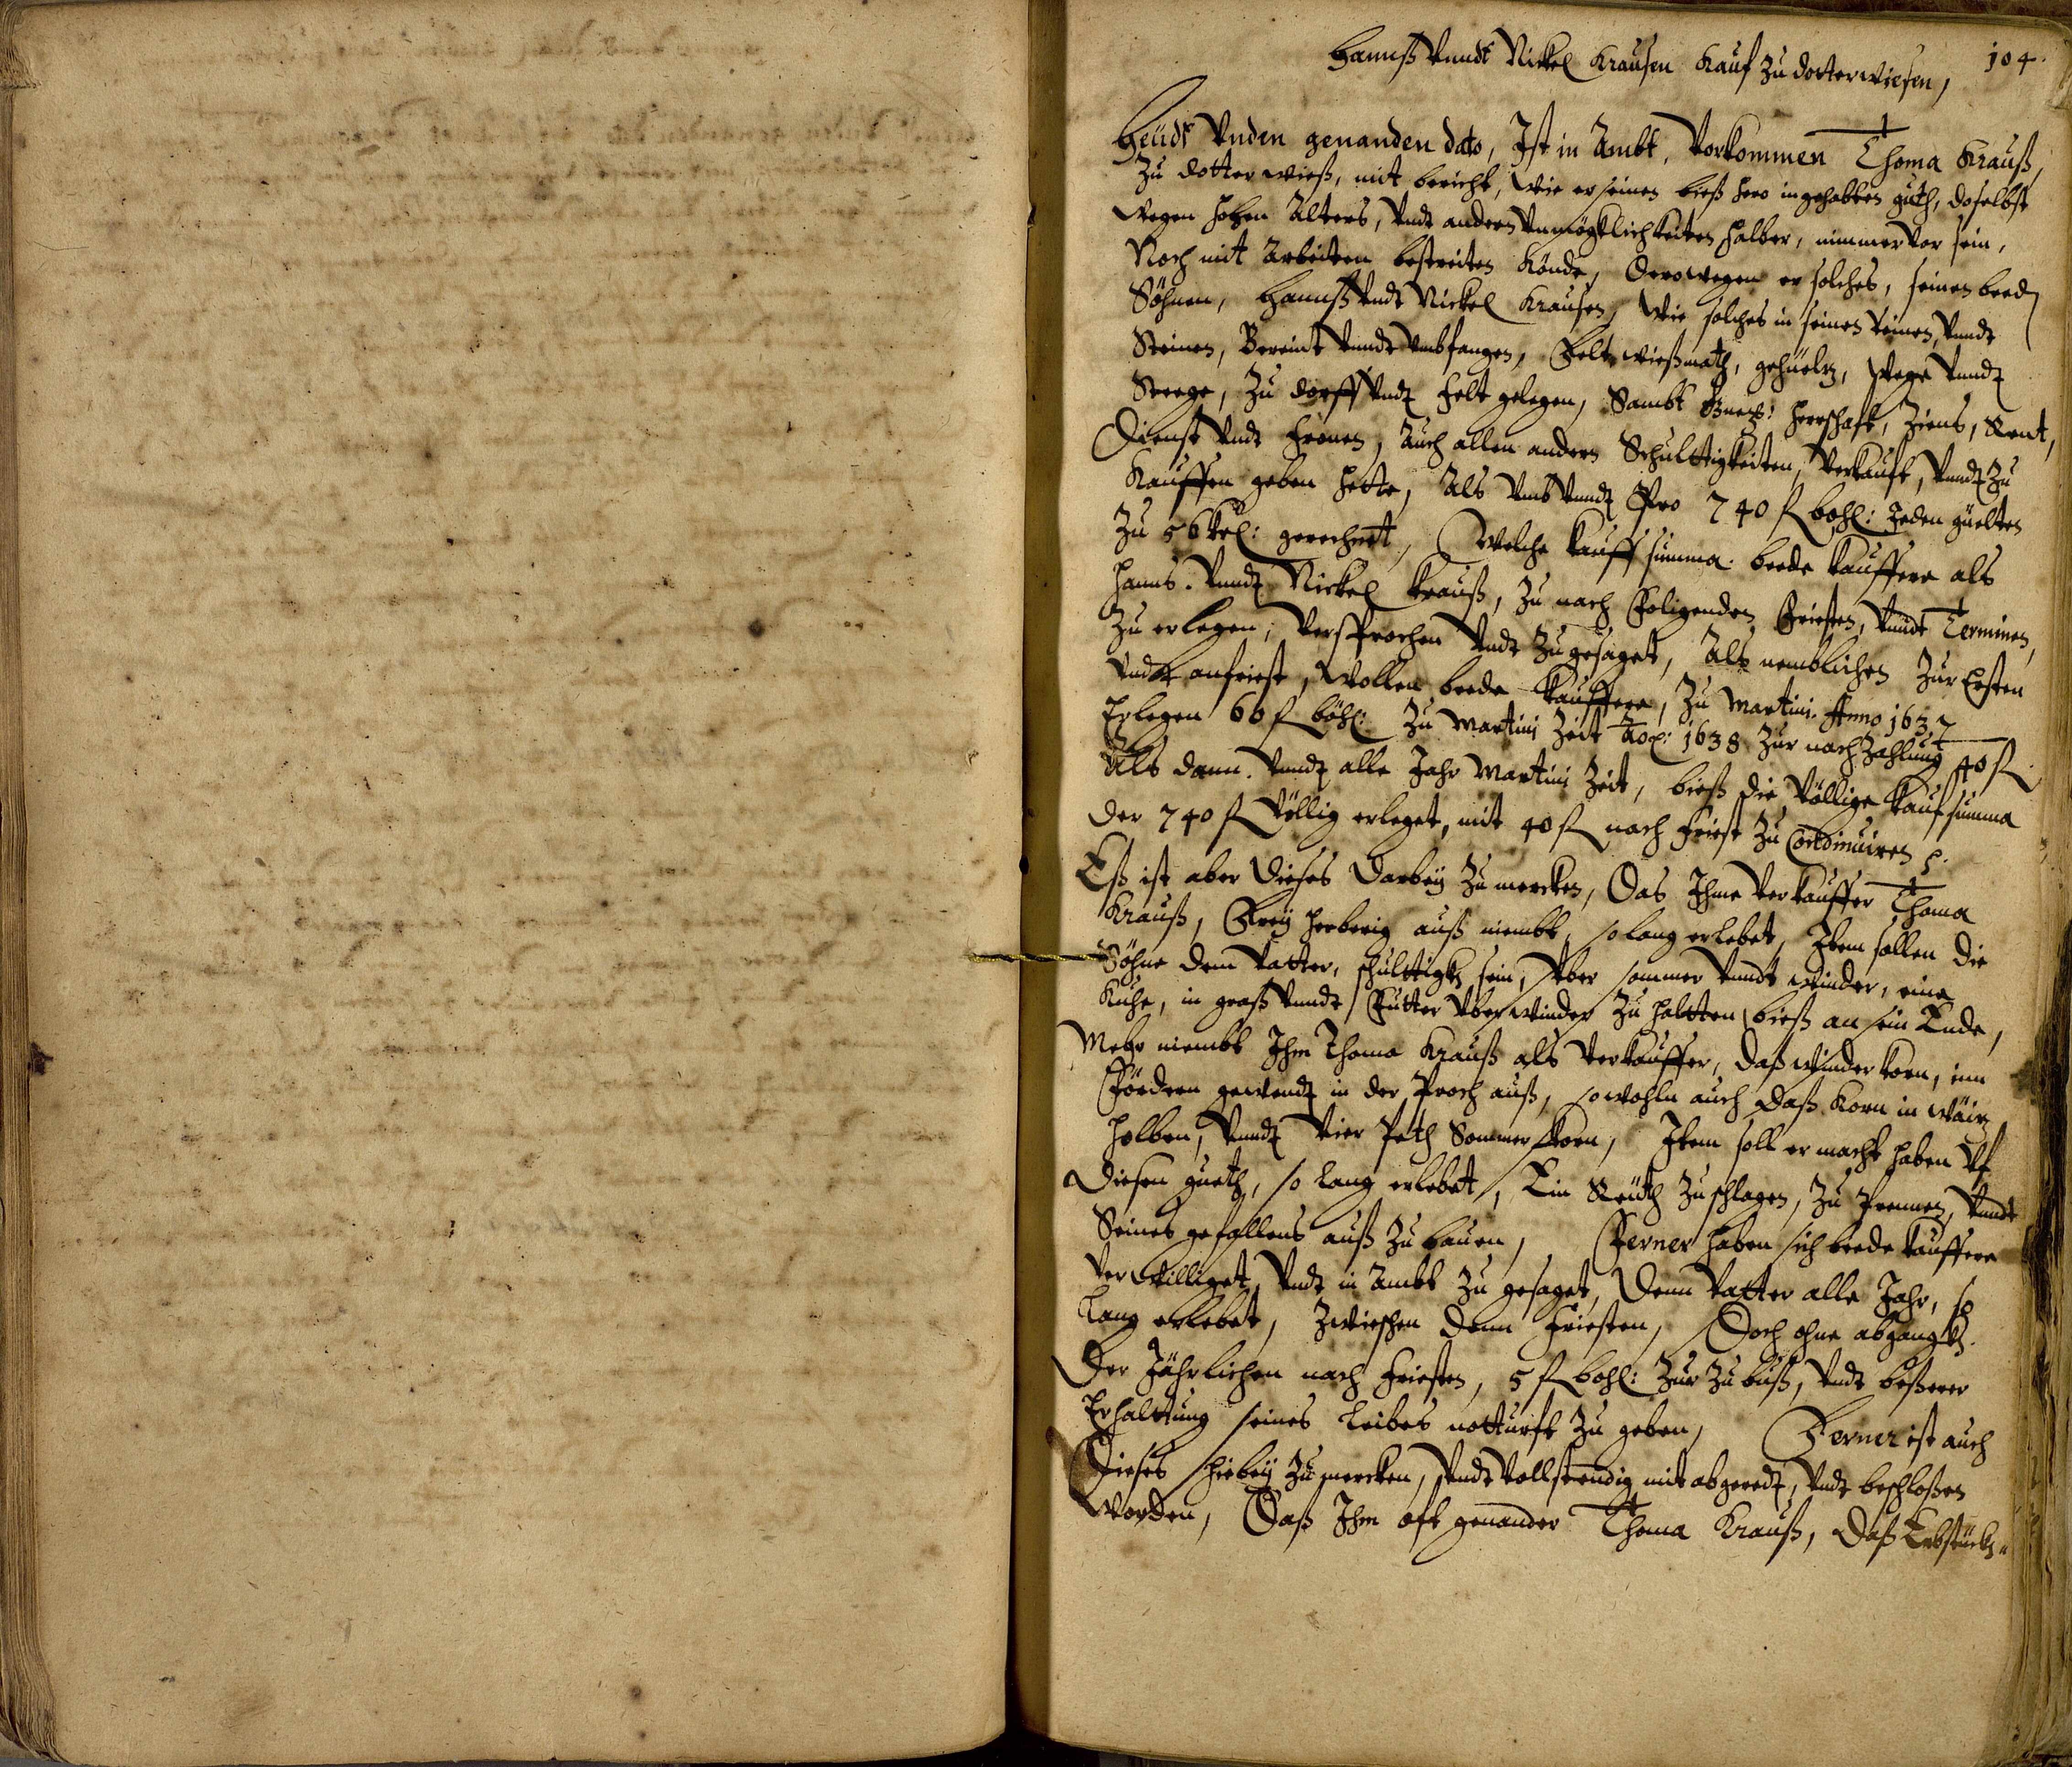 104.
Hannß Vnndt Nickel Krausen Kauf Zu dotterwiesen,
Heüdt Vnden genanden dato, Ist in Ambt, Vorkommen Thoma Krauß,
Zu dotterwieß, mit bericht, Wie er seinen bieß hero ingehabten guth, doselbst
Wegen hohen Alters, Vndt andern Vnmögtlichkeiten halber, nimmer Vor sein,
Noch mit Arbeiten bestreiten Könde, Derowegen er solches, seinen beed
Söhnen, Hannß Vndt Nickel Krausen, Wie solches in seinen Reinen, Vnndt
Steinen, Vereint Vnndt Vmbfangen, Felt, wießmath, gehüeltz, Wege Vnndt
Steege, Zu dorff Vndt Felt gelegen, Sambt Herrschaft, Ziens, Rent,
Dienst Vndt Fronen, Auch allen andern Schulttigkeiten, Verkauft, Vnndt Zu
Kauffen geben hette, Als Vmb Vnndt Pro 740 fl böhl: Jeden güelten
Zu 56 kel: gerechnet, Welche Kauffsumma. beede Kauffere als
Hanns. Vnndt Nickel Krauß, Zu nach Folgenden Friesten, Vnndt Terminen,
Zu erlegen, Versprochen Vndt Zugesaget, Als nemblichen Zur Ersten
Vndt anfriest, Wollen beede Kauffere, Zu Martini. Anno 1637
Erlegen 60 fl böhl: Zu Martini Zeit 1638 Zur nach Zahlung 40 fl.
Als dann. Vnndt alle Jahr Martini Zeit, bieß die Völlige Kaufsumma
der 740 fl Völlig erleget, mit 40 fl nach Friest Zu Continuiren
Eß ist aber dieses darbeÿ Zu mercken, Das Ihme Verkauffer Thoma
Krauß, Freÿ Herberig auß niembt, so lang erlebet, Item sollen die
Söhne dem Vatter, schulttigk sein, Vber sommer Vnndt Winder, eine
Kuhe, in graß Vnndt Futter Vber Winder Zu haltten bieß an sein Ende,
Mehr niembt Ihm Thoma Krauß als Verkauffer, daß Winder Korn, inn
Fördern gewendt in der Proch auß, so wohln auch daß Korn in
holben, Vnndt Vier Peth Sommer Korn, Item soll er macht haben Vf
diesen gueth, so lang erlebet, Ein Reüth Zu schlagen, Zu Prennen, Vnndt
Seines gefallens auß Zu bauen, Ferner haben sich beede Kauffere
Ver Williget, Vndt in Ambt Zu gesaget, Denn Vatter alle Jahr, so
lang erlebet, Zwieschen denn Friesten, Doch ohne abgangk
Der Jährlichen nach Friesten, 5 fl böhl: Zur Zubuß, Vndt beßerer
Erhalttung seines Leibes notturft Zu geben, Ferner ist auch
Dieses Hiebeÿ Zu mercken, Vndt Vollstendig mit abgeredt, Vndt beschloßen
Worden, Daß Ihm oft genander Thoma Krauß, daß Erbstückh